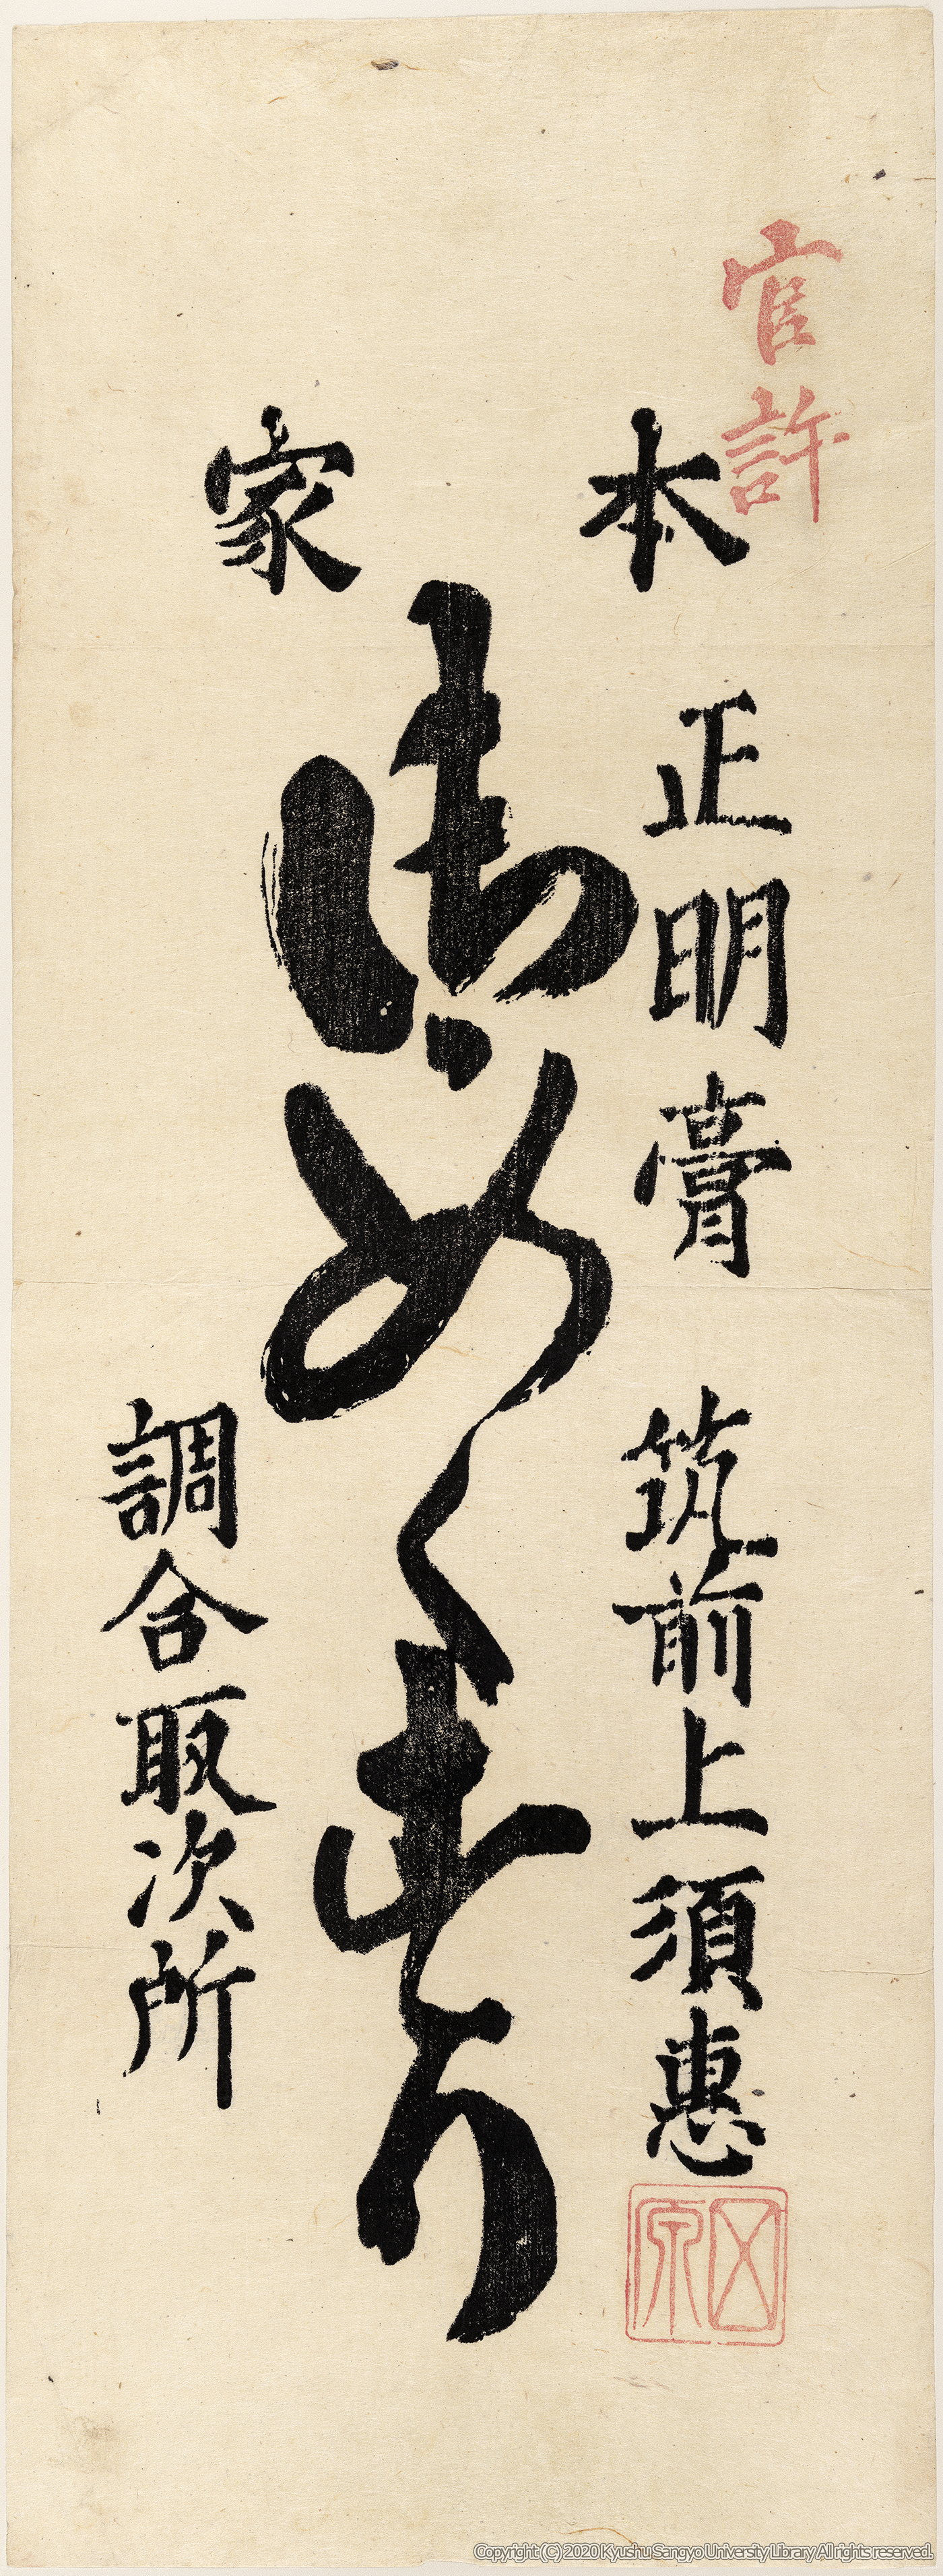 官許
本家
正明膏 筑前上須惠
田原
御めくすり
調合取次所
Copyright (C) 2020 Kyushu Sangyo University Library All rights reserved.